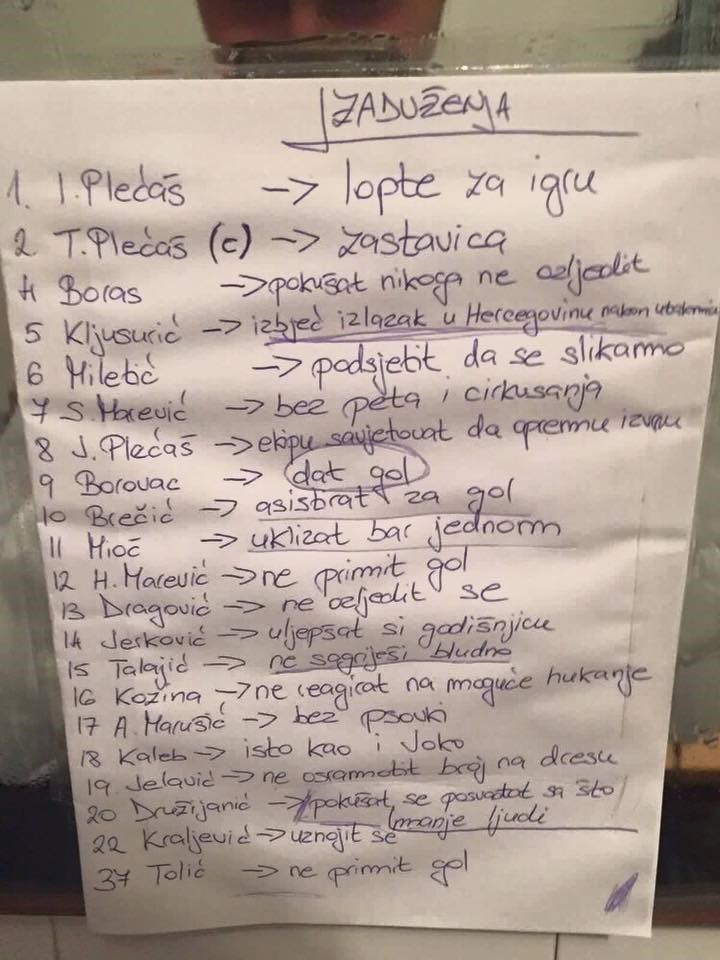 ZADUŽENJA
1. I. Plećaš -> lopte za igru
2 T. Plećaš (c) -> zastavica
4 Boras -> pokušat nikoga ne ozljedit
5 Kljusurić -> izbjeć izlazak u Hercegovinu nakon utakmice
6 Miletić -> podsjetit da se slikamo
7 S. Marević -> bez peta i cirkusanja
8 J. Plećaš -> ekipu savjetovat da opremu izvrnu
9 Borovac -> dat gol
10 Brečić -> asistirat za gol
11 Mioč -> uklizat bar jednom
12 H. Marević -> ne primit gol
13 Dragović -> ne ozljedit se
14 Jerković -> uljepšat si godišnjicu
15 Talajić -> ne sagriješi bludno
16 Kozina -> ne reagirat na moguće hukanje
17 A. Marušić -> bez psovki
18 Kaleb -> isto kao i Joko
19 Jelavić -> ne osramotit broj na dresu
20 Družijanić -> pokušat se posvađat sa što
manje ljudi
22 Kraljević -> uznojit se
37 Tolić -> ne primit gol